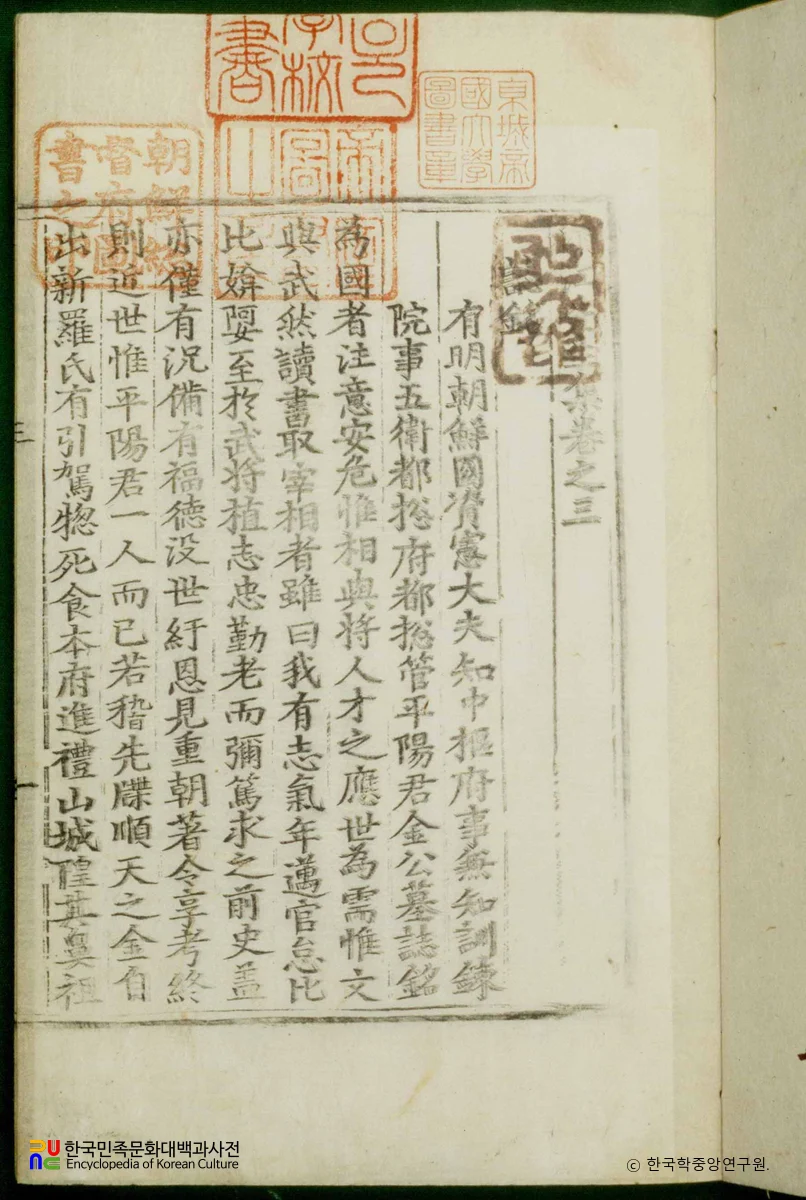 集卷之三
誌銘
有明朝鮮國資憲大夫知中樞府事兼知訓鍊
院事五衛都摠府都摠管平陽君金公墓誌銘
為國者注意安危惟相與將人才之應世為需惟文
與武然讀書取宰相者雖曰我有志氣年邁官怠比
比媕娿至於武將植志忠勤老而彌篤求之前史盖
亦僅有况備有福德没世紆恩見重朝著令享考終
則近世惟平陽君一人而已若稽先牒順天之金自
出新羅氏有引駕惣死食本府進禮山城隍其鼻祖
三
一
東城帝
國大學
圖書章
朝鮮總
督府圖
書之
한국민족문화대백과사전
Encyclopedia of Korean Culture
ⓒ 한국학중앙연구원.